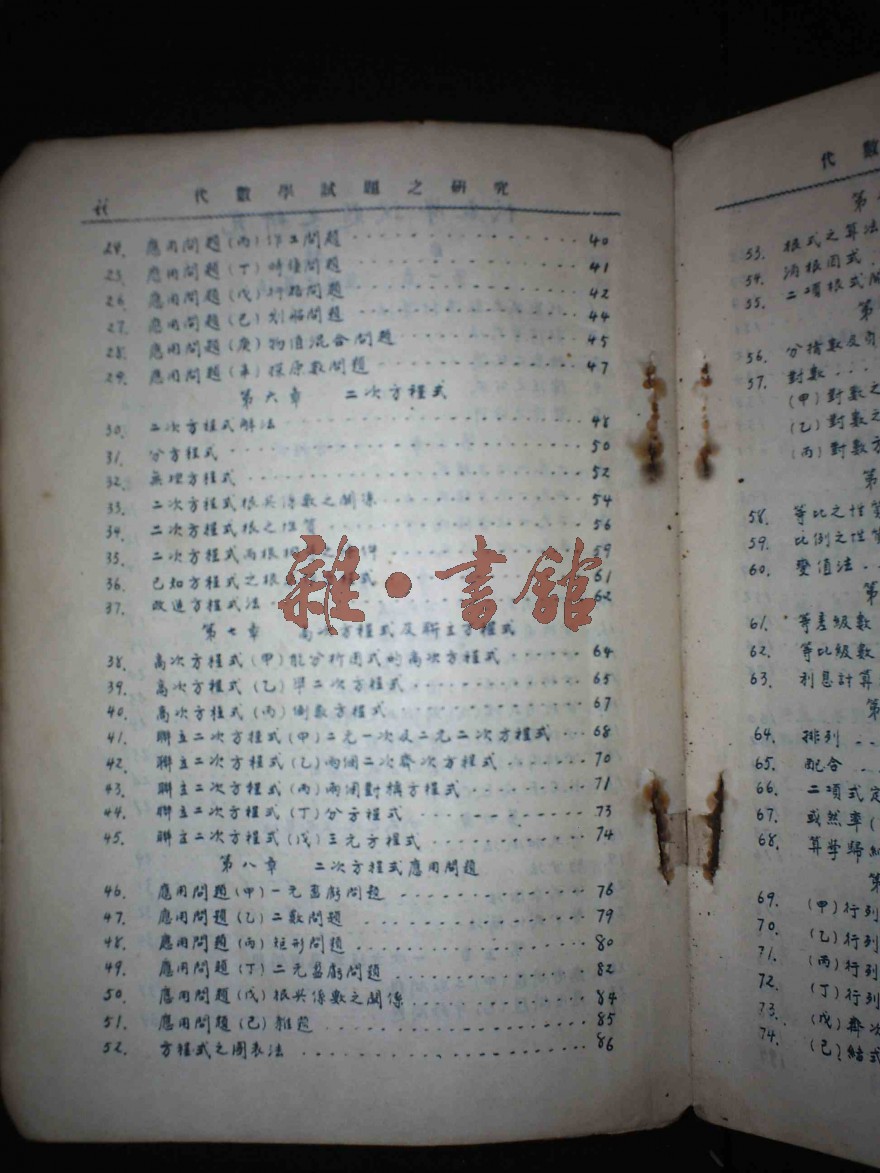 ii 代數學試題之研究
24. 應用問題(丙)作工問題 40
25. 應用問題(丁)時鐘問題 41
26. 應用問題(戊)行路問題 42
27. 應用問題(己)划船問題 44
28. 應用問題(庚)物值混合問題 45
29. 應用問題(辛)探原數問題 47
第六章 二次方程式
30. 二次方程式解法 48
31. 分方程式 50
32. 無理方程式 52
33. 二次方程式根與係數之關係 54
34. 二次方程式根之性質 56
35. 二次方程式兩根 59
36. 已知方程式之根 方程式 61
37. 改造方程式法 62
雜·書館
第七章 高次方程式及聯立方程式
38. 高次方程式(甲)能分析因式的高次方程式 64
39. 高次方程式(乙)準二次方程式 65
40. 高次方程式(丙)倒數方程式 67
41. 聯立二次方程式(甲)二元一次及二元二次方程式 68
42. 聯立二次方程式(乙)兩個二次齊次方程式 70
43. 聯立二次方程式(丙)兩個對稱方程式 71
44. 聯立二次方程式(丁)分方程式 73
45. 聯立二次方程式(戊)三元方程式 74
第八章 二次方程式應用問題
46. 應用問題(甲)一元盈虧問題 76
47. 應用問題(乙)二數問題 79
48. 應用問題(丙)矩形問題 80
49. 應用問題(丁)二元盈虧問題 82
50. 應用問題(戊)根與係數之關係 84
51. 應用問題(己)雜題 85
52. 方程式之圖表法 86
代數
第
53. 根式之算法
54. 消根因式
55. 二項根式
第
56. 分指數及
57. 對數
(甲)對數之
(乙)對數之
(丙)對數方
第
58. 等比之性質
59. 比例之性質
60. 變值法
第
61. 等差級數
62. 等比級數
63. 利息計算
第
64. 排列
65. 配合
66. 二項式定
67. 或然率(
68. 算學歸納
第
69. (甲)行列
70. (乙)行列
71. (丙)行列
72. (丁)行列
73. (戊)齊次
74. (己)結式